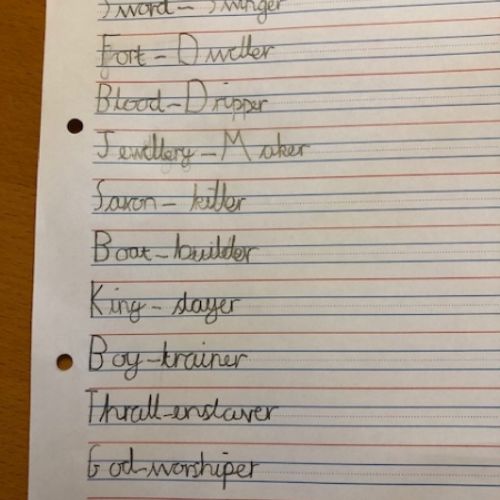 Sword - Swinger
Fort - Dweller
Blood - Dripper
Jewellery - Maker
Saxon - killer
Boat - builder
King - slayer
Boy - trainer
Thrall - enslaver
God - worshiper